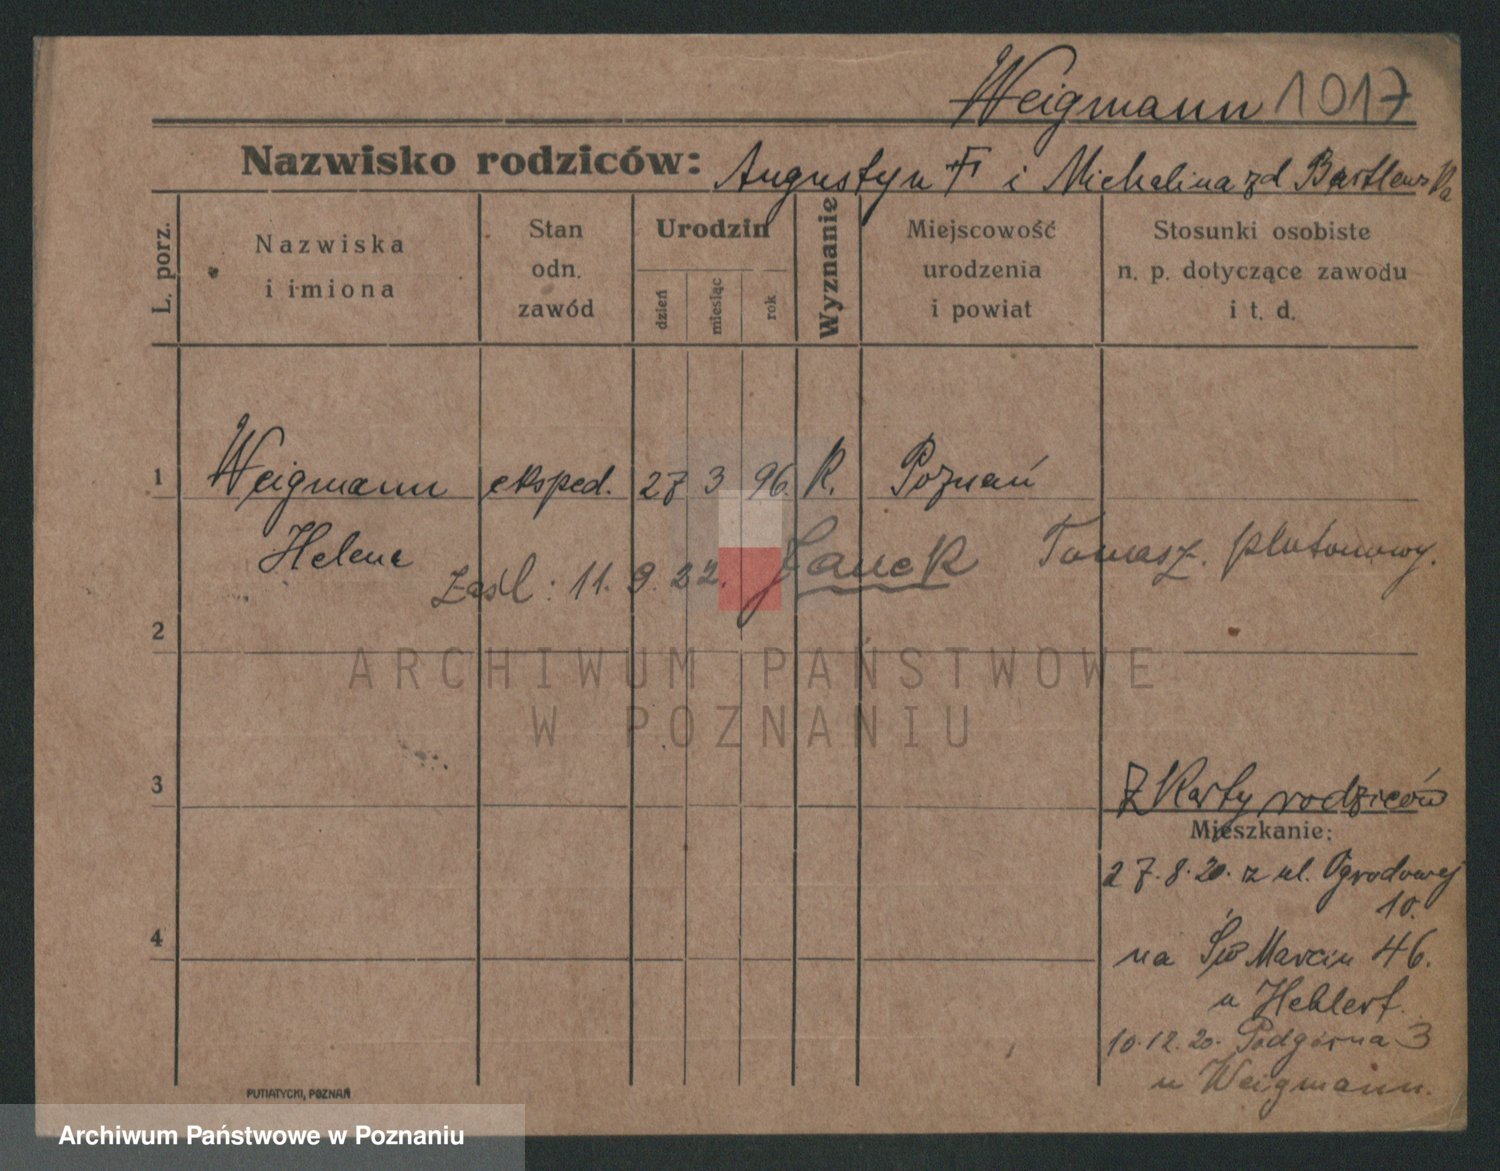 Weigmann 1017
Nazwisko rodziców: Augustyn i Michalina zd Bartlewska
L. porz.
Nazwiska i imiona
Stan odn. zawód
Urodzin
dzień
miesiąc
rok
Wyznanie
Miejscowość urodzenia i powiat
Stosunki osobiste n. p. dotyczące zawodu i t. d.
1 Weigmann eksped. 27 3 96. K. Poznań
Helene
Zaśl: 11. 9. 22. Janek Tomasz. plutonowy.
2
ARCHIWUM PAŃSTWOWE
W POZNANIU
3
Z Karty rodziców
Mieszkanie:
27.8.20. z ul. Ogrodowej
10.
4
na Św Marcin 46.
u Hehlert.
10.12.20. Podgórna 3
u Weigmann.
PUTIATYCKI, POZNAŃ
Archiwum Państwowe w Poznaniu